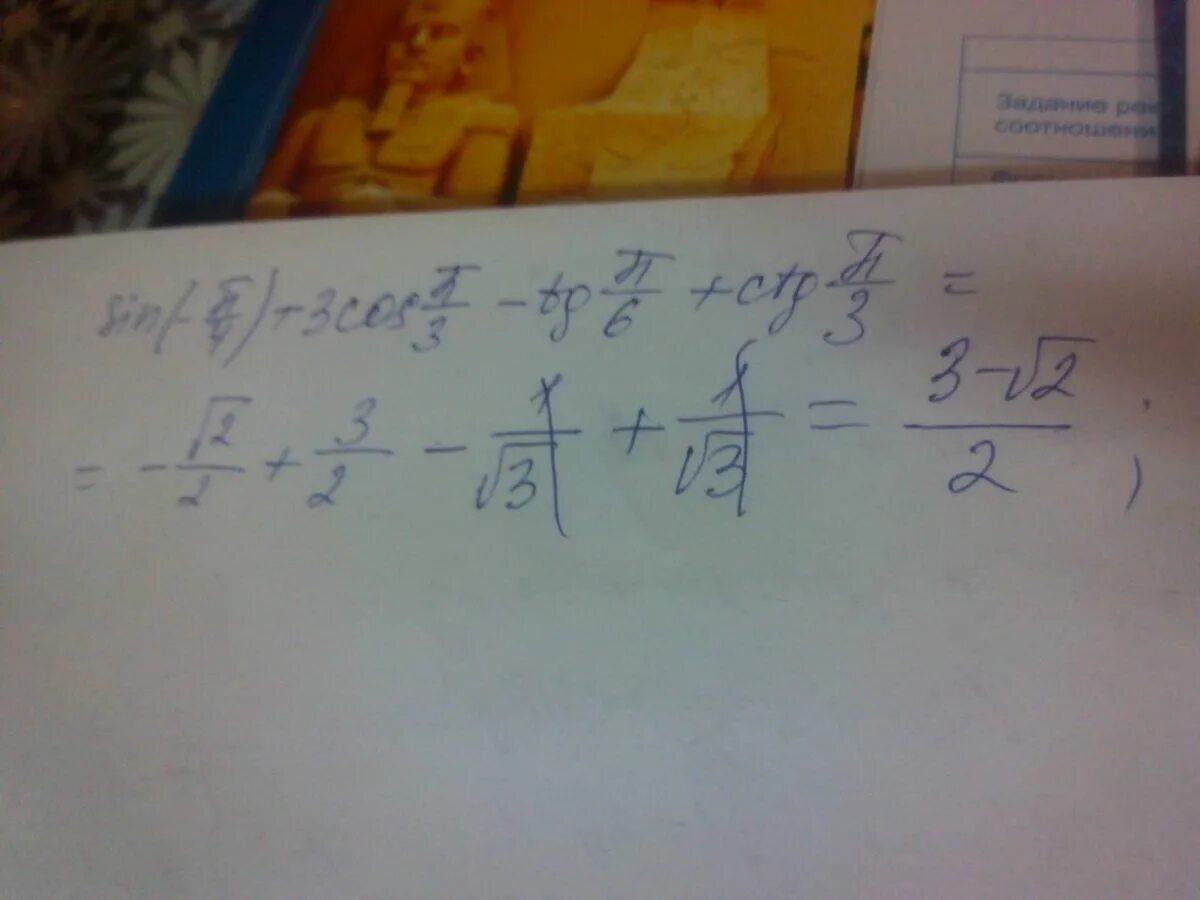 Задание
соотношени
sin(-π/4)+3cos π/3 - tg π/6 + ctg π/3 =
= -√2/2 + 3/2 - 1/√3 + 1/√3 = 3-√2/2 ;